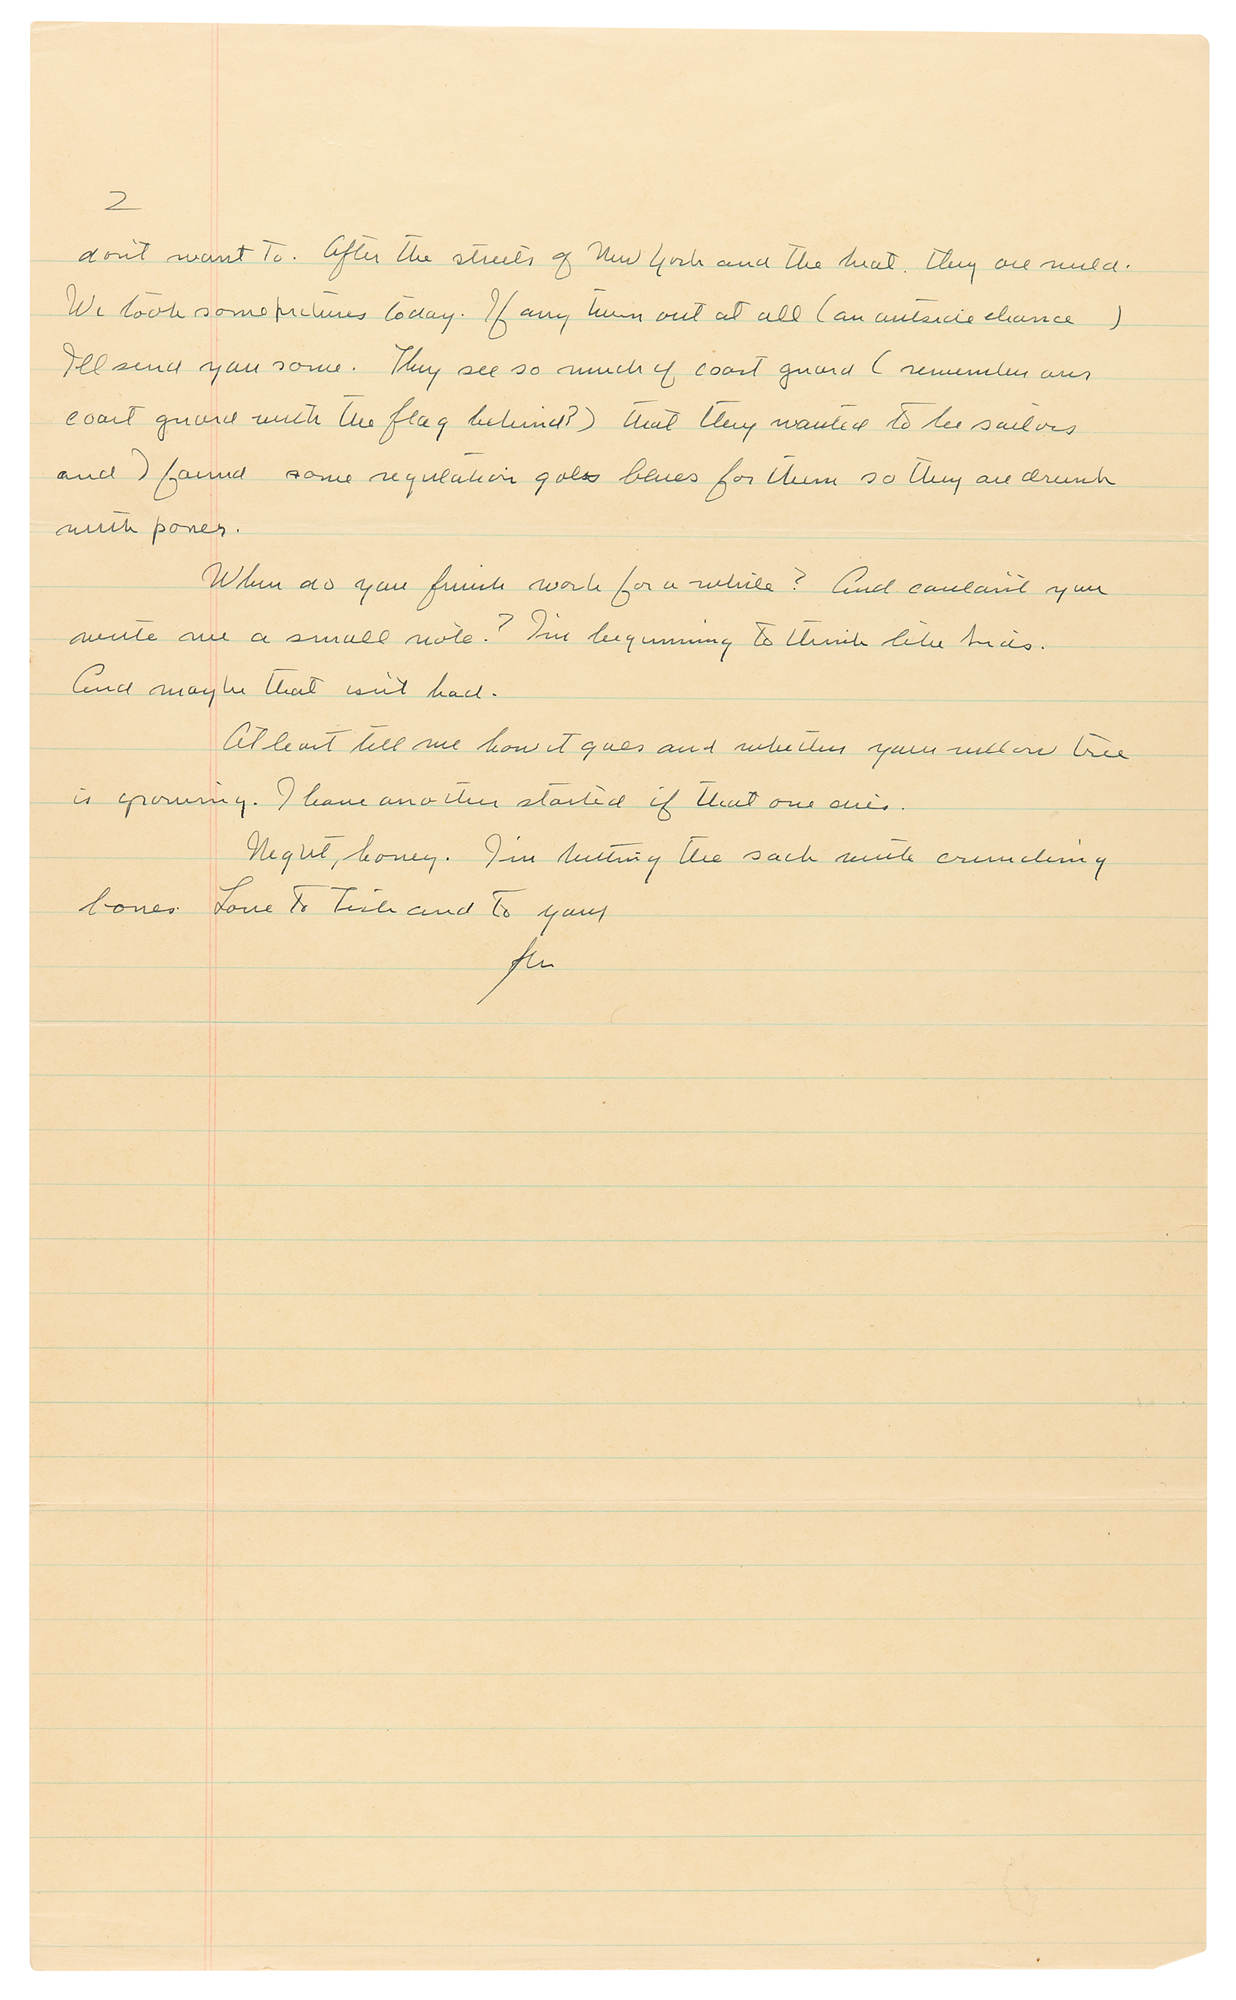 2
don't want to. After the streets of New York and the heat, they are wild.
We took some pictures today. If any turn out at all (an outside chance )
I'll send you some. They see so much of coast guard ( remember our
coast guard with the flag behind?) that they wanted to be sailors
and I found some regulation gobs blues for them so they are drunk
with power.
When do you finish work for a while? And couldn't you
write me a small note? I'm beginning to think like kids.
And maybe that isn't bad.
At least tell me how it goes and whether your willow tree
is growing. I have another started if that one dies.
Night, honey. I'm hitting the sack with crumbling
bones. Love to and to you